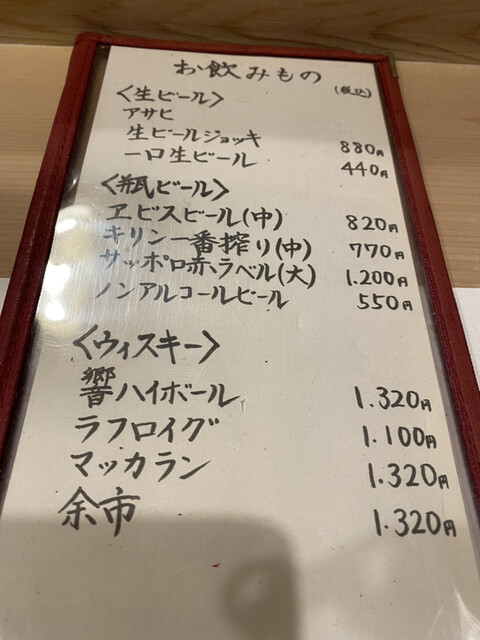 お飲みもの
(税込)
〈生ビール〉
アサヒ
生ビールジョッキ 880円
一口生ビール 440円
〈瓶ビール〉
ヱビスビール(中) 820円
キリン一番搾り(中) 770円
サッポロ赤ラベル(大) 1.200円
ノンアルコールビール 550円
〈ウィスキー〉
響ハイボール 1.320円
ラフロイグ 1.100円
マッカラン 1.320円
余市 1.320円